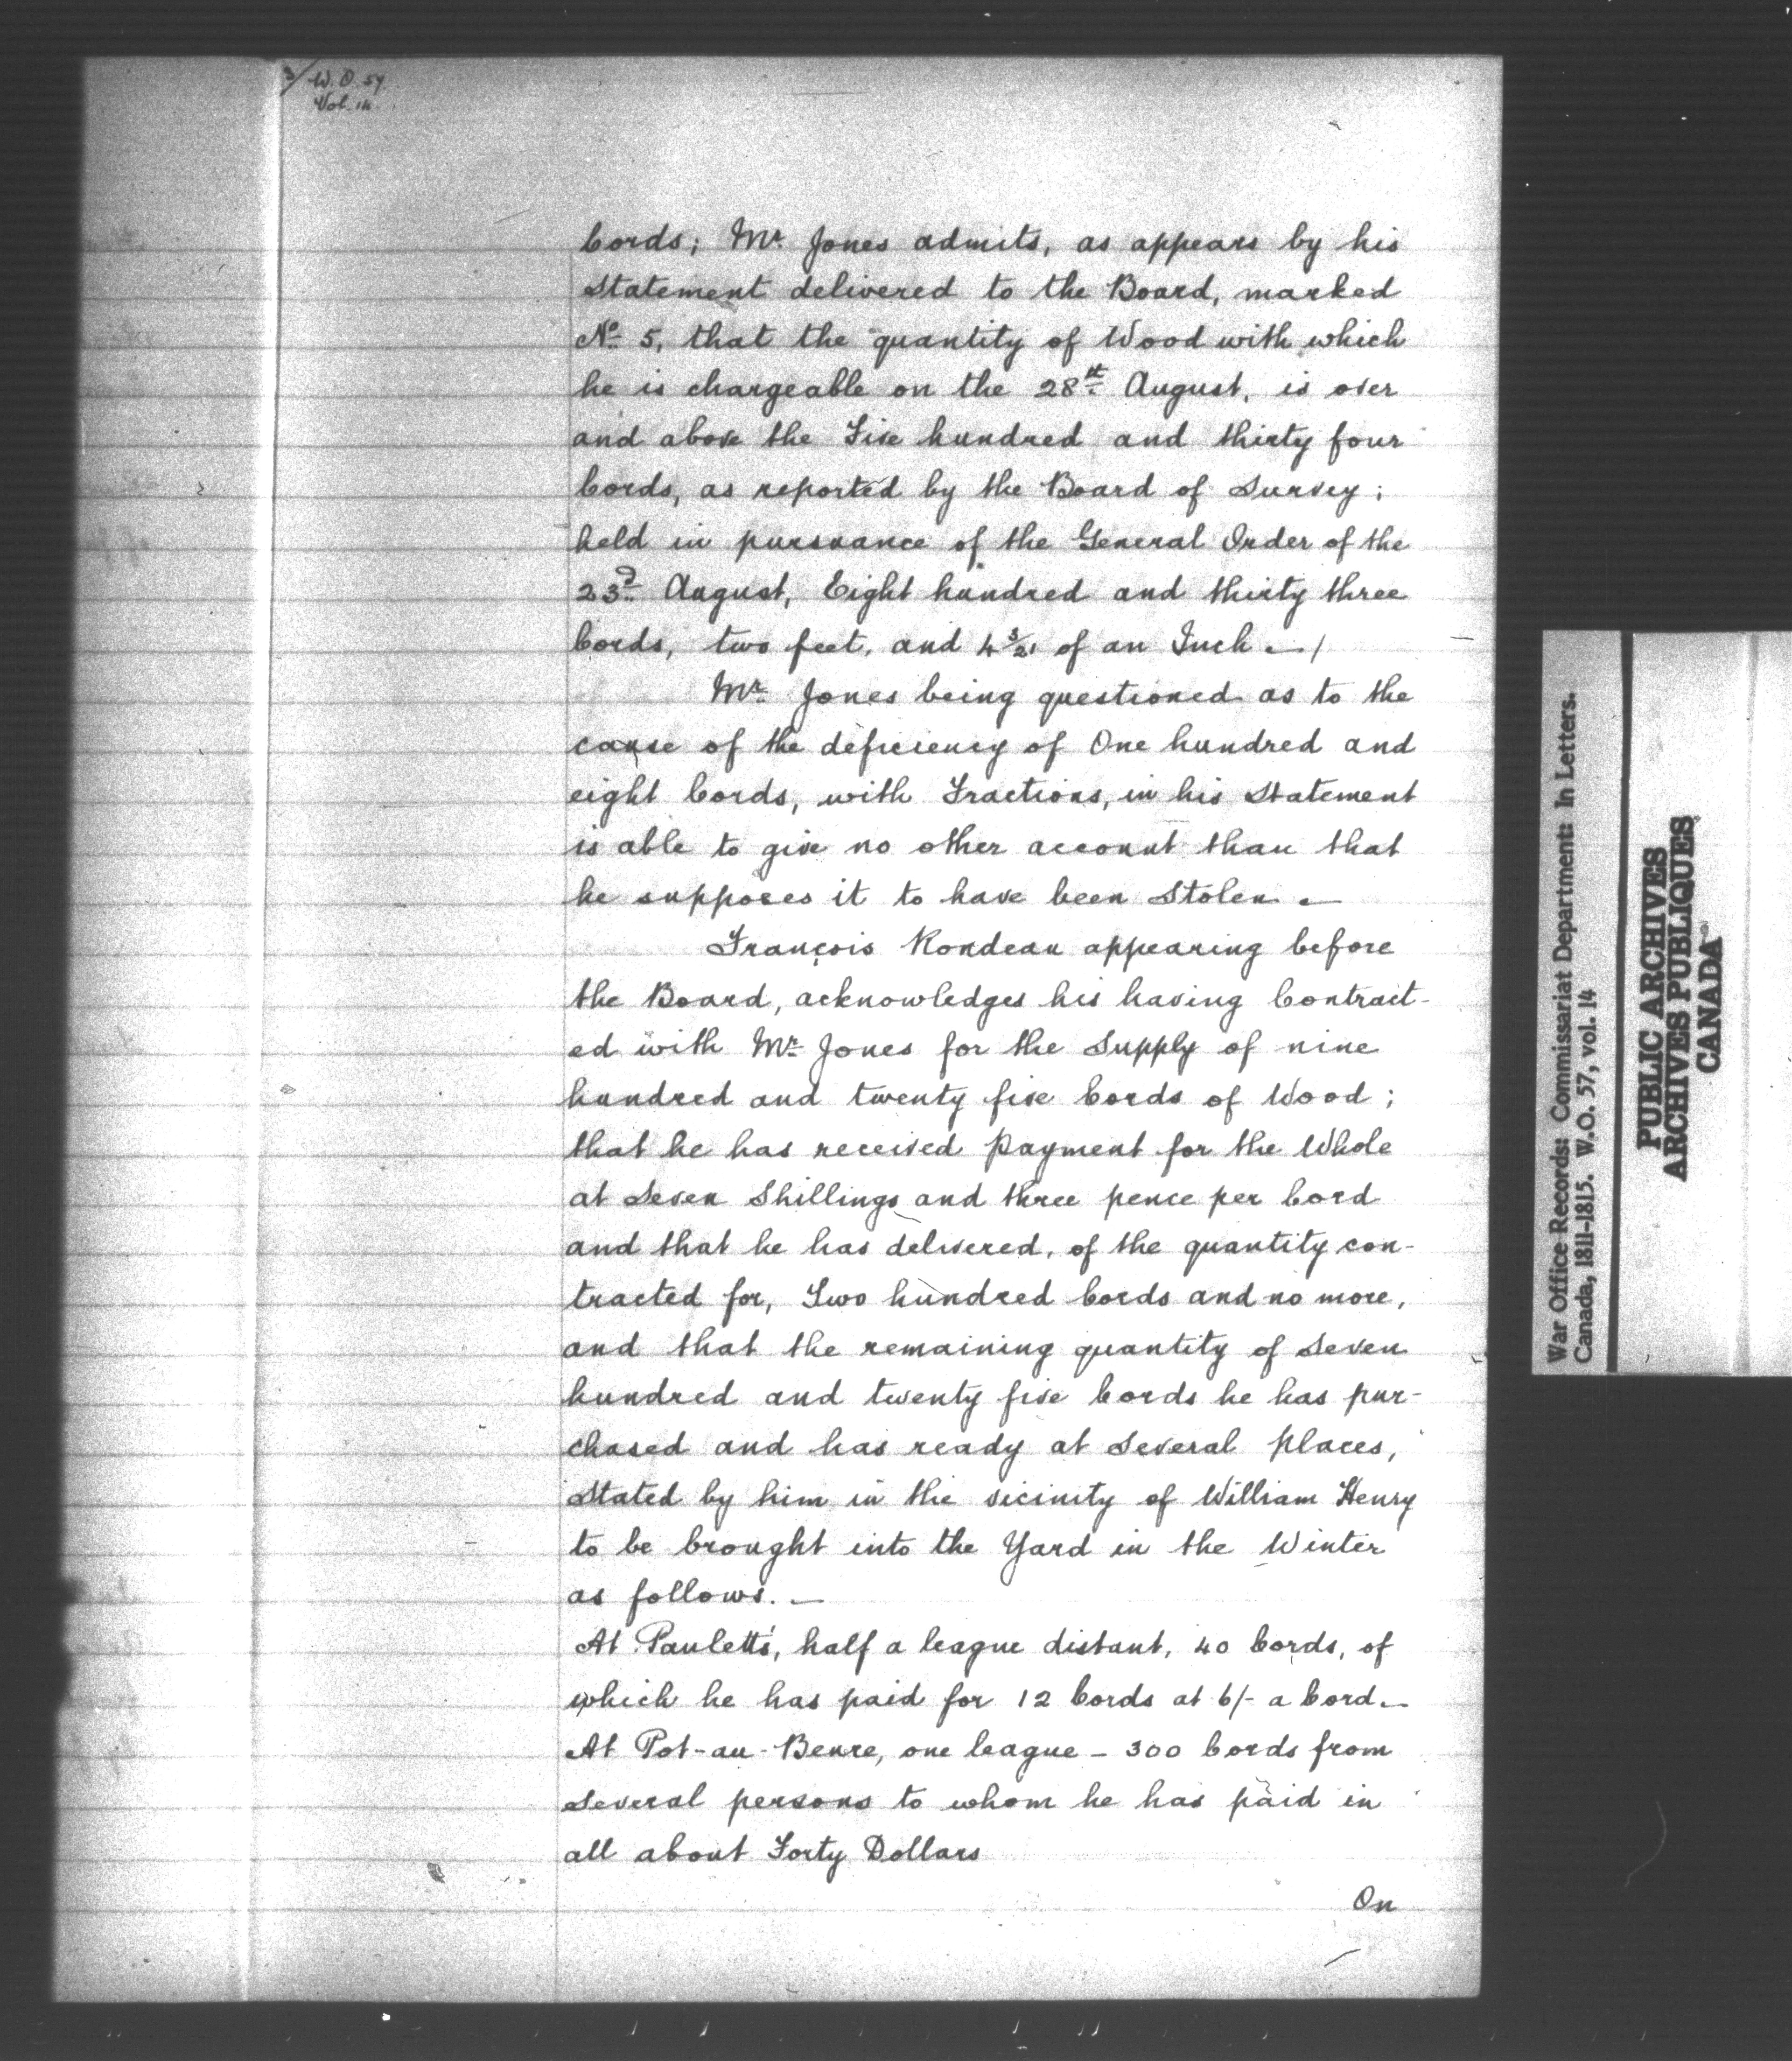 3/ W.O. 57
Vol. 14
Cords; Mr. Jones admits, as appears by his
Statement delivered to the Board, marked
No. 5, that the quantity of Wood with which
he is chargeable on the 28th August, is over
and above the Five hundred and thirty four
Cords, as reported by the Board of Survey;
held in pursuance of the General Order of the
23d August, Eight hundred and thirty three
Cords, two feet, and 4 3/21 of an Inch. — /
Mr. Jones being questioned as to the
cause of the deficiency of One hundred and
eight Cords, with Fractions, in his Statement
is able to give no other account than that
he supposes it to have been Stolen. —
François Rondeau appearing before
the Board, acknowledges his having Contract-
ed with Mr. Jones for the Supply of nine
hundred and twenty five Cords of Wood;
that he has received Payment for the Whole
at Seven Shillings and three pence per Cord
and that he has delivered, of the quantity con-
tracted for, Two hundred Cords and no more,
and that the remaining quantity of Seven
hundred and twenty five Cords he has pur-
chased and has ready at Several Places,
Stated by him in the vicinity of William Henry
to be brought into the Yard in the Winter
as follows. —
At Pauletts', half a league distant, 40 Cords, of
which he has paid for 12 Cords at 6/- a Cord. —
At Pot-au-Beure, one league - 300 Cords from
Several persons to whom he has paid in
all about Forty Dollars
On
War Office Records: Commissariat Department: In Letters.
Canada, 1811-1815. W.O. 57, vol. 14
PUBLIC ARCHIVES
ARCHIVES PUBLIQUES
CANADA